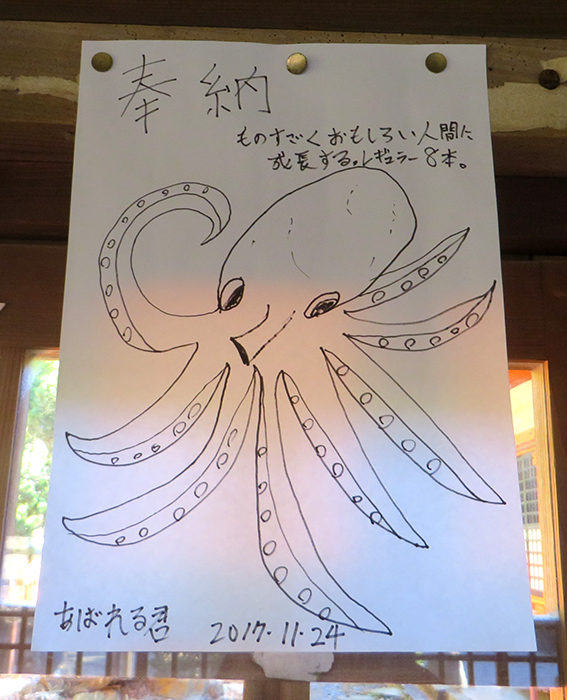 奉納
ものすごくおもしろい人間に
成長する。レギュラー8本。
あばれる君 2017.11.24